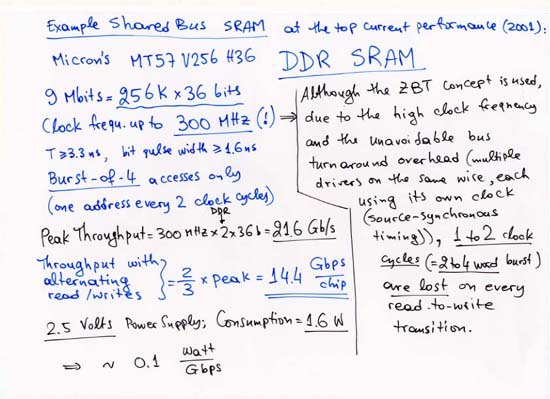 Example Shared Bus SRAM at the top current performance (2001):
Micron's MT57 V256 H36
DDR SRAM
9 Mbits = 256K × 36 bits
Clock frequ. up to 300 MHz (!) ⇒
T ≥ 3.3 ns, bit pulse width ≥ 1.6 ns
Burst-of-4 accesses only
(one address every 2 clock cycles)
DDR
↓
Peak Throughput = 300 MHz × 2 × 36 b = 21.6 Gb/s
Throughput with
alternating
read/writes } = 2/3 × peak = 14.4 Gbps/chip
2.5 Volts Power Supply; Consumption = 1.6 W
⇒ ~ 0.1 Watt/Gbps
Although the ZBT concept is used,
due to the high clock freqnency
and the unavoidable bus
turnaround overhead (multiple
drivers on the same wire, each
using its own clock
(source-synchronous
timing)), 1 to 2 clock
cycles (=2 to 4 word burst)
are lost on every
read-to-write
transition.